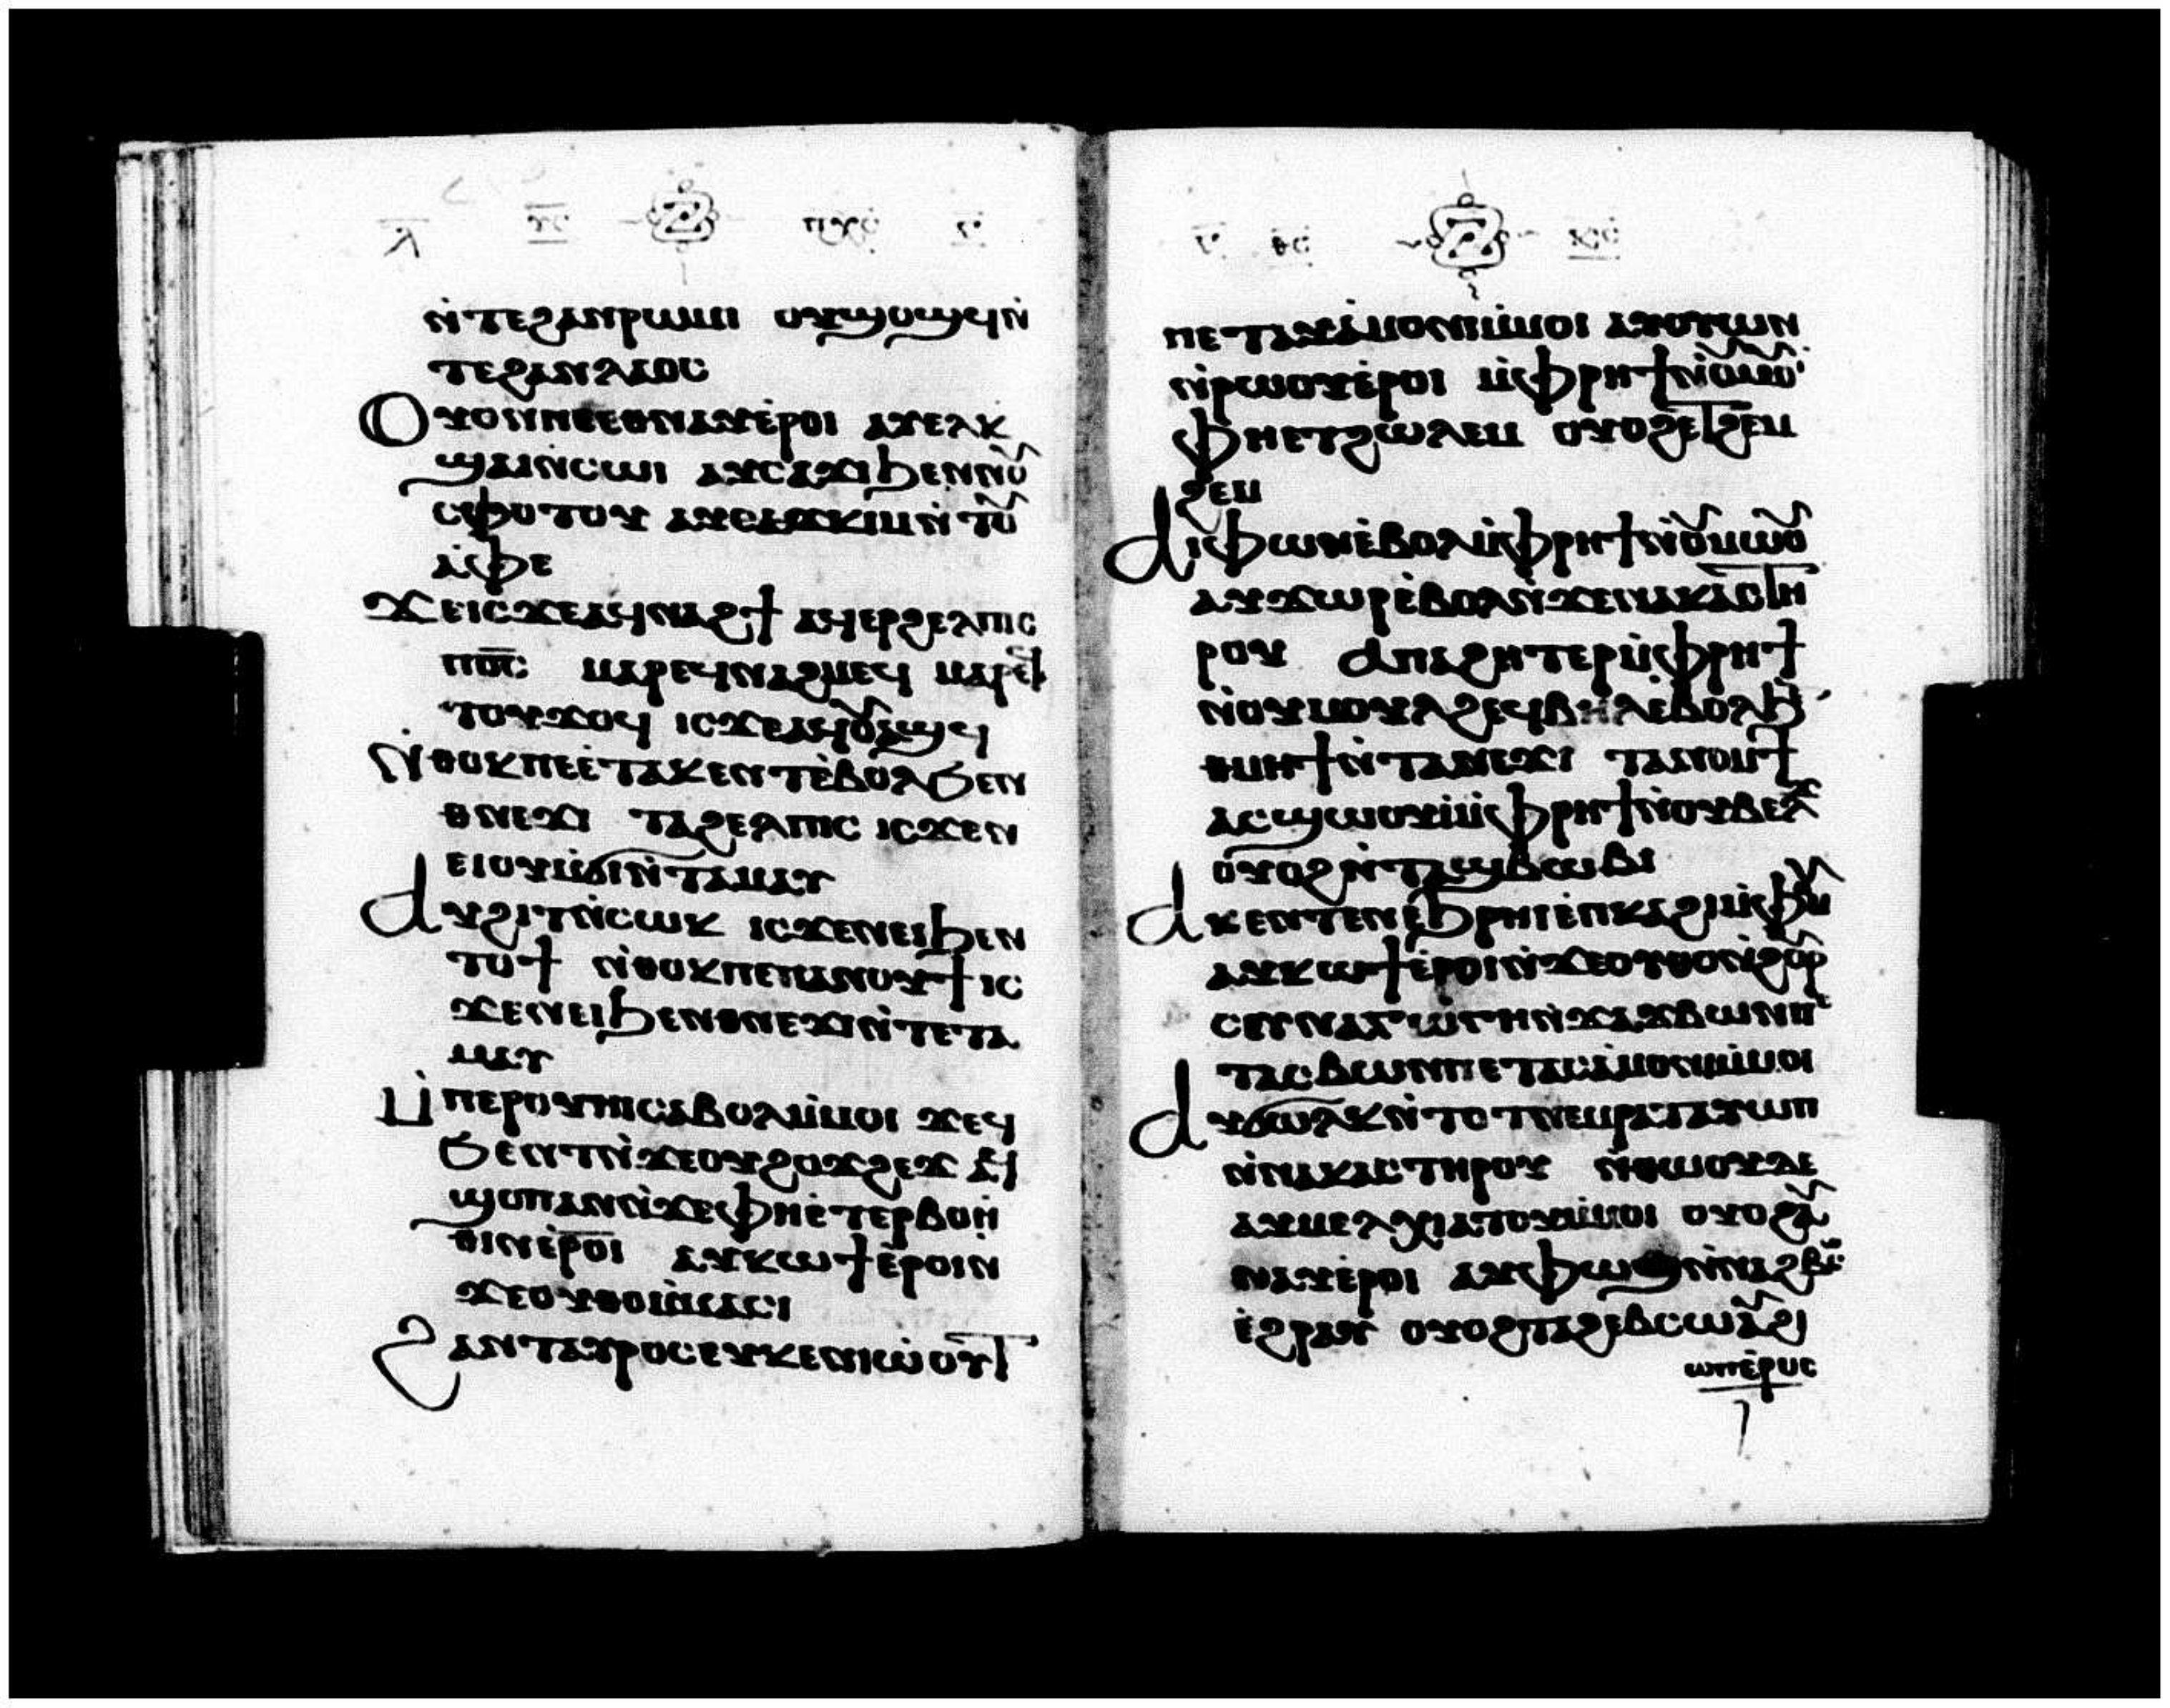 ⲗ̅ ⲓ̅ⲥ̅ ⲡⲭ̅ⲥ̅ ⲅ̅
ⲛ̀ⲧⲉϩⲁⲛⲣⲱⲙⲓ ⲟⲩϣⲟϣϥⲛ̀
ⲧⲉϩⲁⲛⲗⲁⲟⲥ
Ⲟⲩⲟⲛⲛⲓⲃⲉⲉⲑⲛⲁⲩⲉ̀ⲣⲟⲓ ⲁⲩⲉⲗⲕ
ϣⲁⲓⲛ̀ⲥⲱⲓ ⲁⲩⲥⲁϫⲓϧⲉⲛⲛⲟⲩ
ⲥⲫⲟⲧⲟⲩ ⲁⲩⲕⲓⲙⲛ̀ⲧⲟⲩ
ⲁ̀ⲫⲉ
Ϫⲉⲓⲥϫⲉⲁϥⲛⲁϩϯ ⲁϥⲉⲣϩⲉⲗⲡⲓⲥ
ⲡⲟ̅ⲥ̅ ⲙⲁⲣⲉϥⲛⲁϩⲙⲉϥ ⲙⲁⲣⲉϥ
ⲧⲟⲩϫⲟϥ ⲓⲥϫⲉⲁϥⲟⲩⲁϣϥ
Ⲛ̀ⲑⲟⲕⲡⲉⲉ̀ⲧⲁⲕⲉⲛⲧⲉ̀ⲃⲟⲗϧⲉⲛ
ⲑⲛⲉϫⲓ ⲧⲁϩⲉⲗⲡⲓⲥ ⲓⲥϫⲉⲛ
ⲉⲓⲟⲩⲉⲙϭⲓⲛ̀ⲧⲁⲙⲁⲩ
Ⲁⲩϩⲓⲧⲛ̀ⲥⲱⲕ ⲓⲥϫⲉⲛⲉⲓϧⲉⲛ
ⲧⲟϯ ⲛ̀ⲑⲟⲕⲡⲉⲡⲁⲛⲟⲩϯ ⲓⲥ
ϫⲉⲛⲉⲓϧⲉⲛⲑⲛⲉϫⲓⲛ̀ⲧⲉⲧⲁ
ⲙⲁⲩ
Ⲙ̀ⲡⲉⲣⲟⲩⲏⲓⲥⲁⲃⲟⲗⲙ̀ⲙⲟⲓ ϫⲉϥ
ϧⲉⲛⲧⲛ̀ϫⲉⲟⲩϩⲟϫϩⲉϫ ϥ̀
ϣⲟⲡⲁⲛⲛ̀ϫⲉⲫⲏⲉ̀ⲧⲉⲣⲃⲟⲏ̀
ⲑⲓⲛⲉ̀ⲣⲟⲓ ⲁⲩⲕⲱϯⲉ̀ⲣⲟⲓⲛ̀
ϫⲉⲟⲩⲑⲟⲙ̀ⲙⲁⲥⲓ
Ϩⲁⲛⲧⲁⲩⲣⲟⲥⲉⲩⲕⲉⲛⲓⲱ̀ⲟⲩⲧ
ⲅ̅ ⲑ̅ⲥ̅ ⲩ̅ⲥ̅
ⲡⲉⲧⲁⲩⲁ̀ⲙⲟⲛⲓⲙ̀ⲙⲟⲓ ⲁⲩⲟⲩⲱⲛ
ⲛ̀ⲣⲱⲟⲩⲉ̀ⲣⲟⲓ ⲙ̀ⲫⲣⲏϯⲛ̀ⲟⲩⲙⲟⲩⲓ
ⲫⲏⲉⲧϩⲱⲗⲉⲙ ⲟⲩⲟϩⲉⲧϩⲉⲙ
ϩⲉⲙ
Ⲁⲓⲫⲱⲛⲉ̀ⲃⲟⲗⲙ̀ⲫⲣⲏϯⲛ̀ⲟⲩⲙⲱⲟⲩ
ⲁⲩϫⲱⲣⲉ̀ⲃⲟⲗⲛ̀ϫⲉⲛⲁⲕⲁⲥⲧⲏ
ⲣⲟⲩ ⲁⲡⲁϩⲏⲧⲉⲣⲙ̀ⲫⲣⲏϯ
ⲛ̀ⲟⲩⲙⲟⲩⲗϩⲉϥⲃⲏⲗⲉ̀ⲃⲟⲗϧ
ⲑⲙⲏϯⲛ̀ⲧⲁⲛⲉϫⲓ ⲧⲁⲛⲟⲙϯ
ⲁⲥϣⲱⲟⲩⲓ̀ⲙ̀ⲫⲣⲏϯⲛ̀ⲟⲩⲃⲉⲗϫ
ⲟⲩⲟϩⲛ̀ⲧⲁϣⲃⲱⲃⲓ
Ⲁⲕⲉⲛⲧⲉⲛⲉ̀ϧⲣⲏⲓⲉ̀ⲡⲕⲁϩⲓⲙ̀ⲫⲙⲟⲩ
ⲁⲩⲕⲱϯⲉ̀ⲣⲟⲓⲛ̀ϫⲉⲟⲩⲑⲟⲛ̀ⲟⲩϩⲟⲣ
ⲥⲩⲛⲁⲅⲱⲅⲏⲛ̀ϫⲁϫⲃⲱⲛⲡⲉ
ⲧⲁⲥⲃⲱⲛⲡⲉⲧⲁⲥⲁ̀ⲙⲟⲛⲓⲙ̀ⲙⲟⲓ
Ⲁⲩϭⲱⲗⲕⲛ̀ⲧⲟⲧⲛⲉⲙⲣⲁⲧⲁⲩⲱⲡ
ⲛ̀ⲛⲁⲕⲁⲥⲧⲏⲣⲟⲩ ⲛ̀ⲑⲱⲟⲩⲇⲉ
ⲁⲩⲙⲉⲗⲭⲓⲁⲧⲟⲩⲙ̀ⲙⲟⲓ ⲟⲩⲟϩⲁⲩ
ⲛⲁⲩⲉ̀ⲣⲟⲓ ⲁⲩⲫⲱϣⲛ̀ⲛⲁϩⲃⲱⲥ
ⲉ̀ϩⲣⲁⲩ ⲟⲩⲟϩⲧⲁϩⲉⲃⲥⲱⲁⲩϩⲓ
ⲱⲡⲉ̀ⲣⲟⲥ